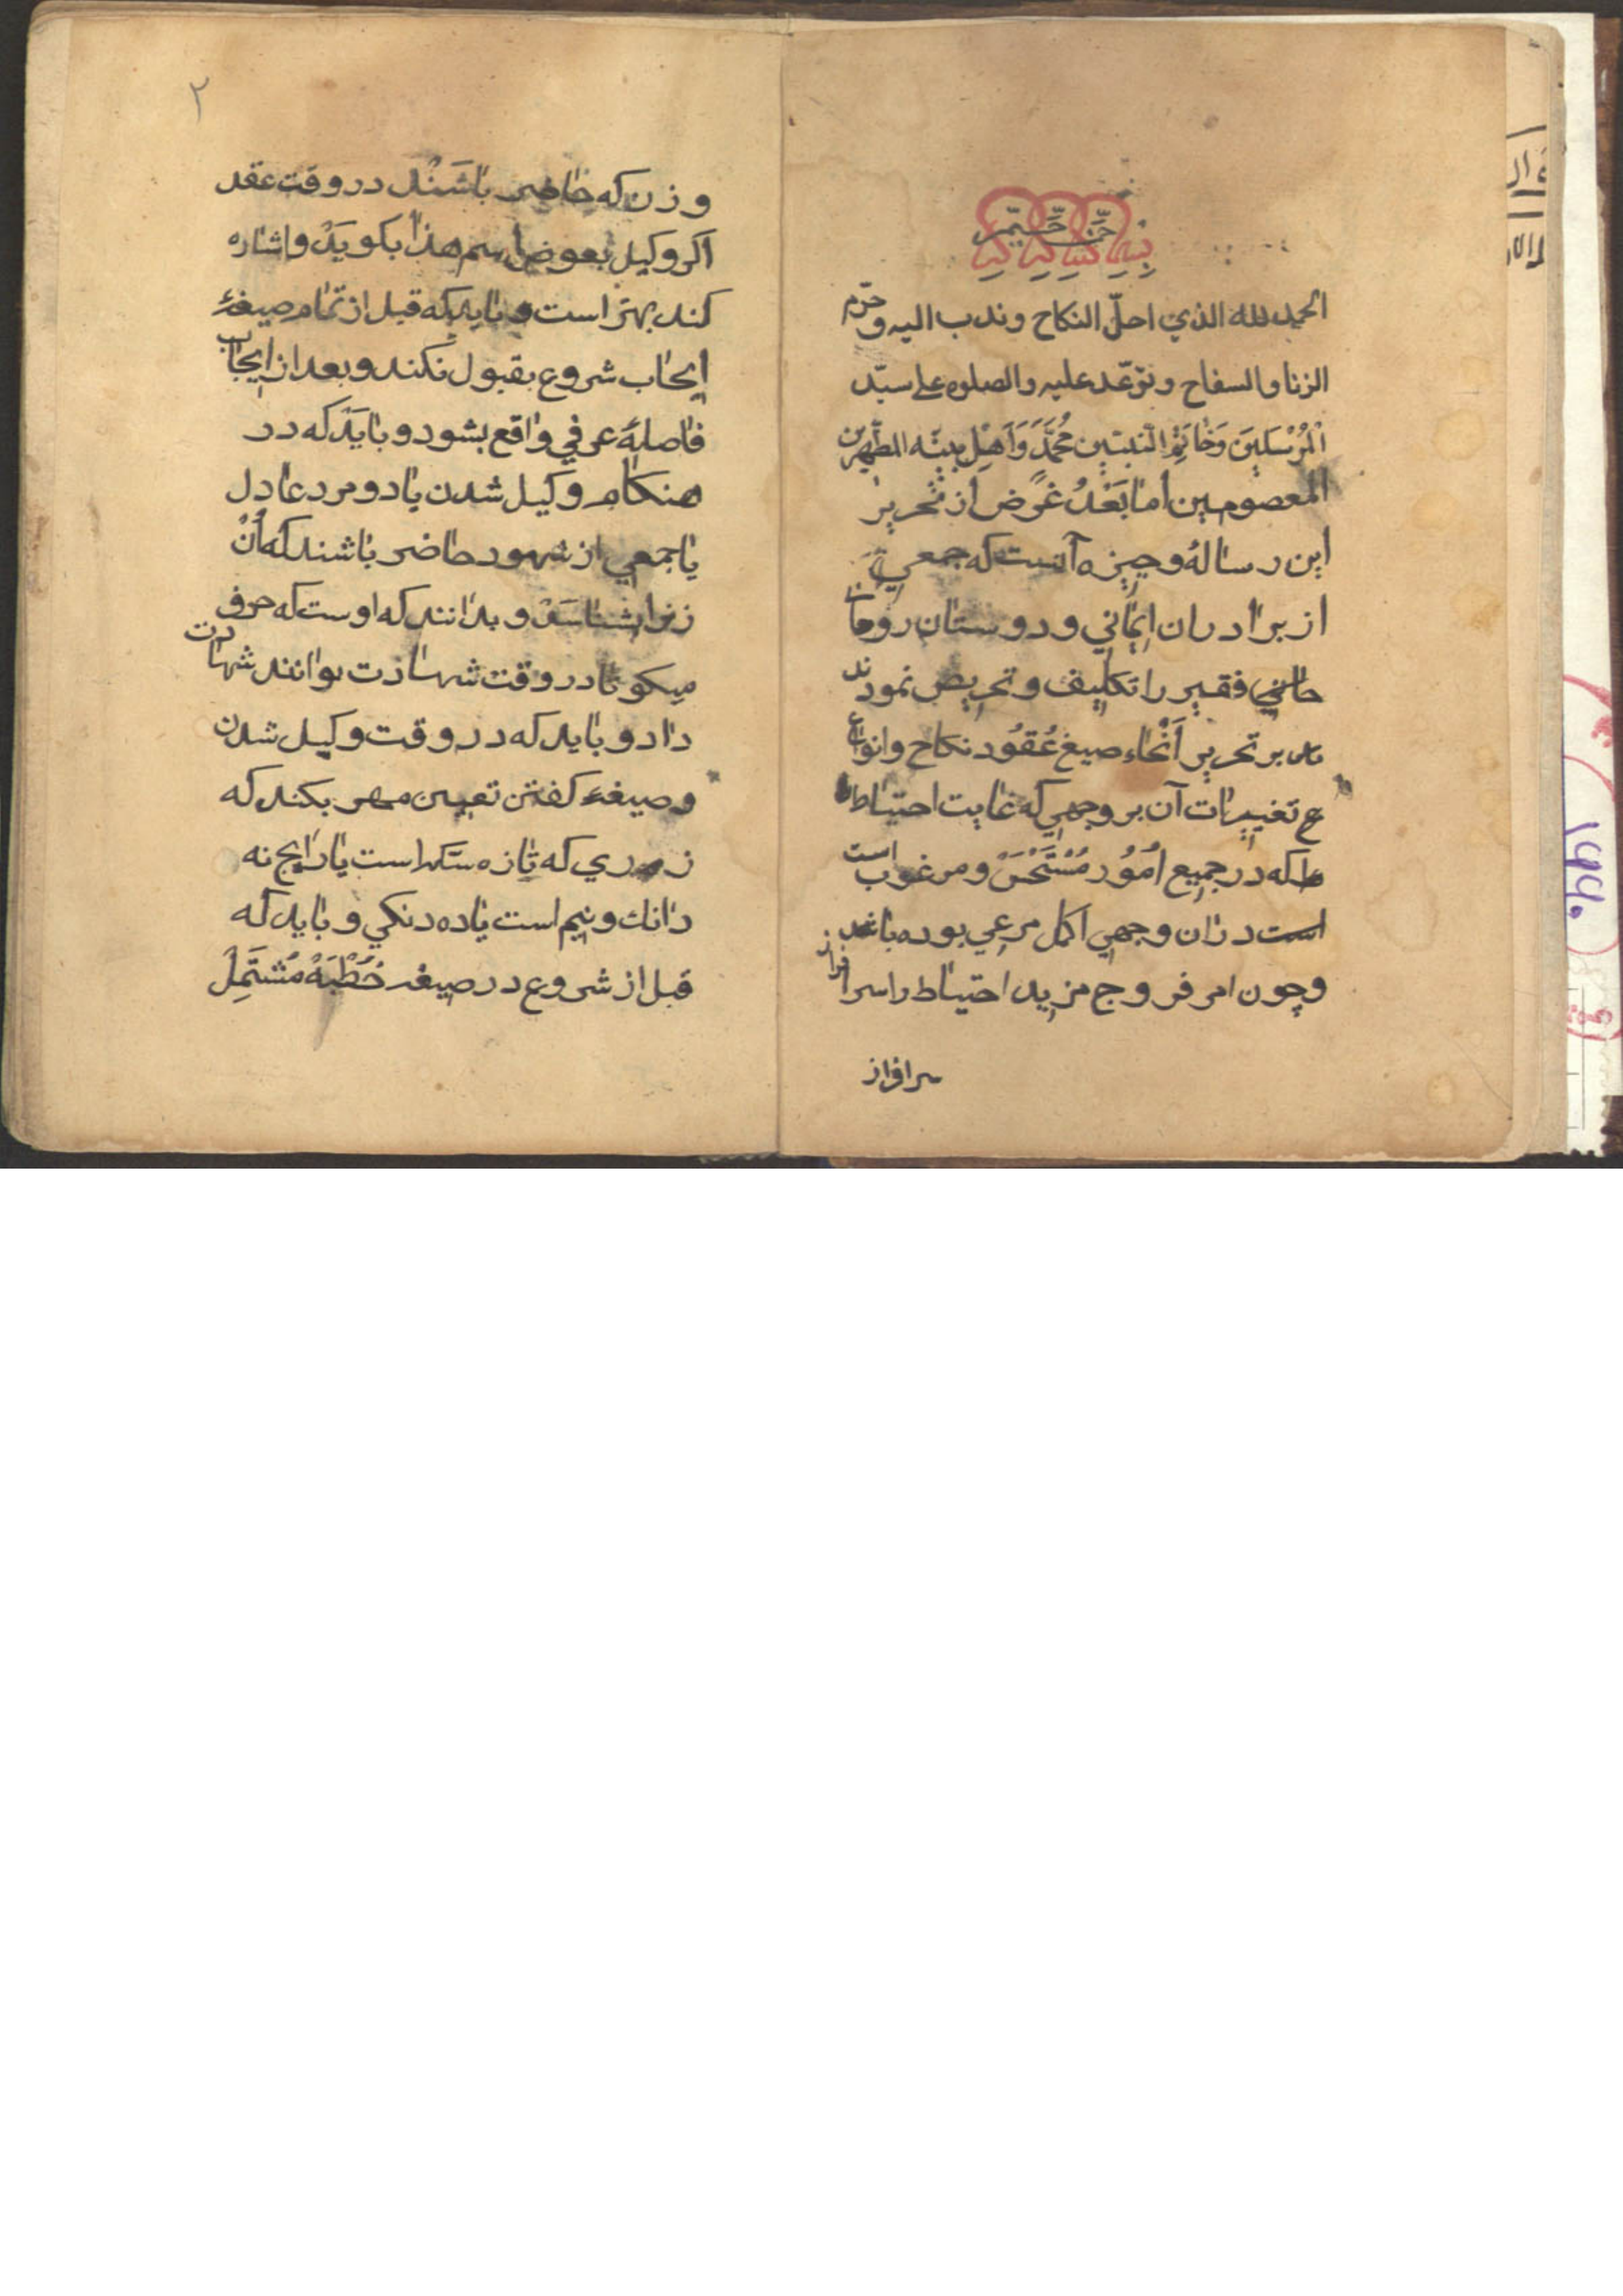 الحمد لله الذي احلّ النكاح وندب اليه وحرّم
الزنا والسفاح وتوّعد عليه والصلوه على سيّد
الْمُرْسَلينَ وَخاتَمِ النّبيّين مُحمَّدَ وَاَهْلِ بيتِه المطَّهرين
المعصومين اما بَعْدُ غَرَض از تحرير
اين رسالهٔ وجيزه آنست كه جمعي
از برادران ايماني ودوستان روحا
حاني فقير را تكليف وتحريص نمودند
ند بر تحرير اَنْحاء صيغ عُقُود نكاح وانواع
ع تغييرات آن بر وجهي كه غايت احتياط
ط كه در جميع اُمُور مُسْتَحْسَنْ ومرغوب است
است دران وجهي اكمل مرعي بوده باشد
وچون امر فروج مزيد احتياط را سرافراز
سرافراز
٢
وزن كه حاضر باشَنْد در وقت عقد
اكر وكيل بعوض اسم هذا بكويَدْ واشاره
كند بهتر است وبايد كه قبل از تمام صيغهٔ
ايجاب شروع بقبول نكند وبعد از ايجاب
فاصلهٔ عرفي واقع بشود وبايَدْ كه در
هنكام وكيل شدن يا دو مرد عادل
يا جمعي از شهود حاضر باشند كه اُنْ
زنرا بشناسَنْد وبدانند كه اوست كه حرف
ميكو تا در وقت شهادت توانند شهادت
داد وبايد كه در وقت وكيل شدن
وصيغهٔ كفتن تعيين مهر بكند كه
زري كه تازه سكه است يا رايج نه
دانك ونيم است يا ده دنكي وبايد كه
قبل از شروع در صيغه خُطْبَهْ مُشتَمِلْ